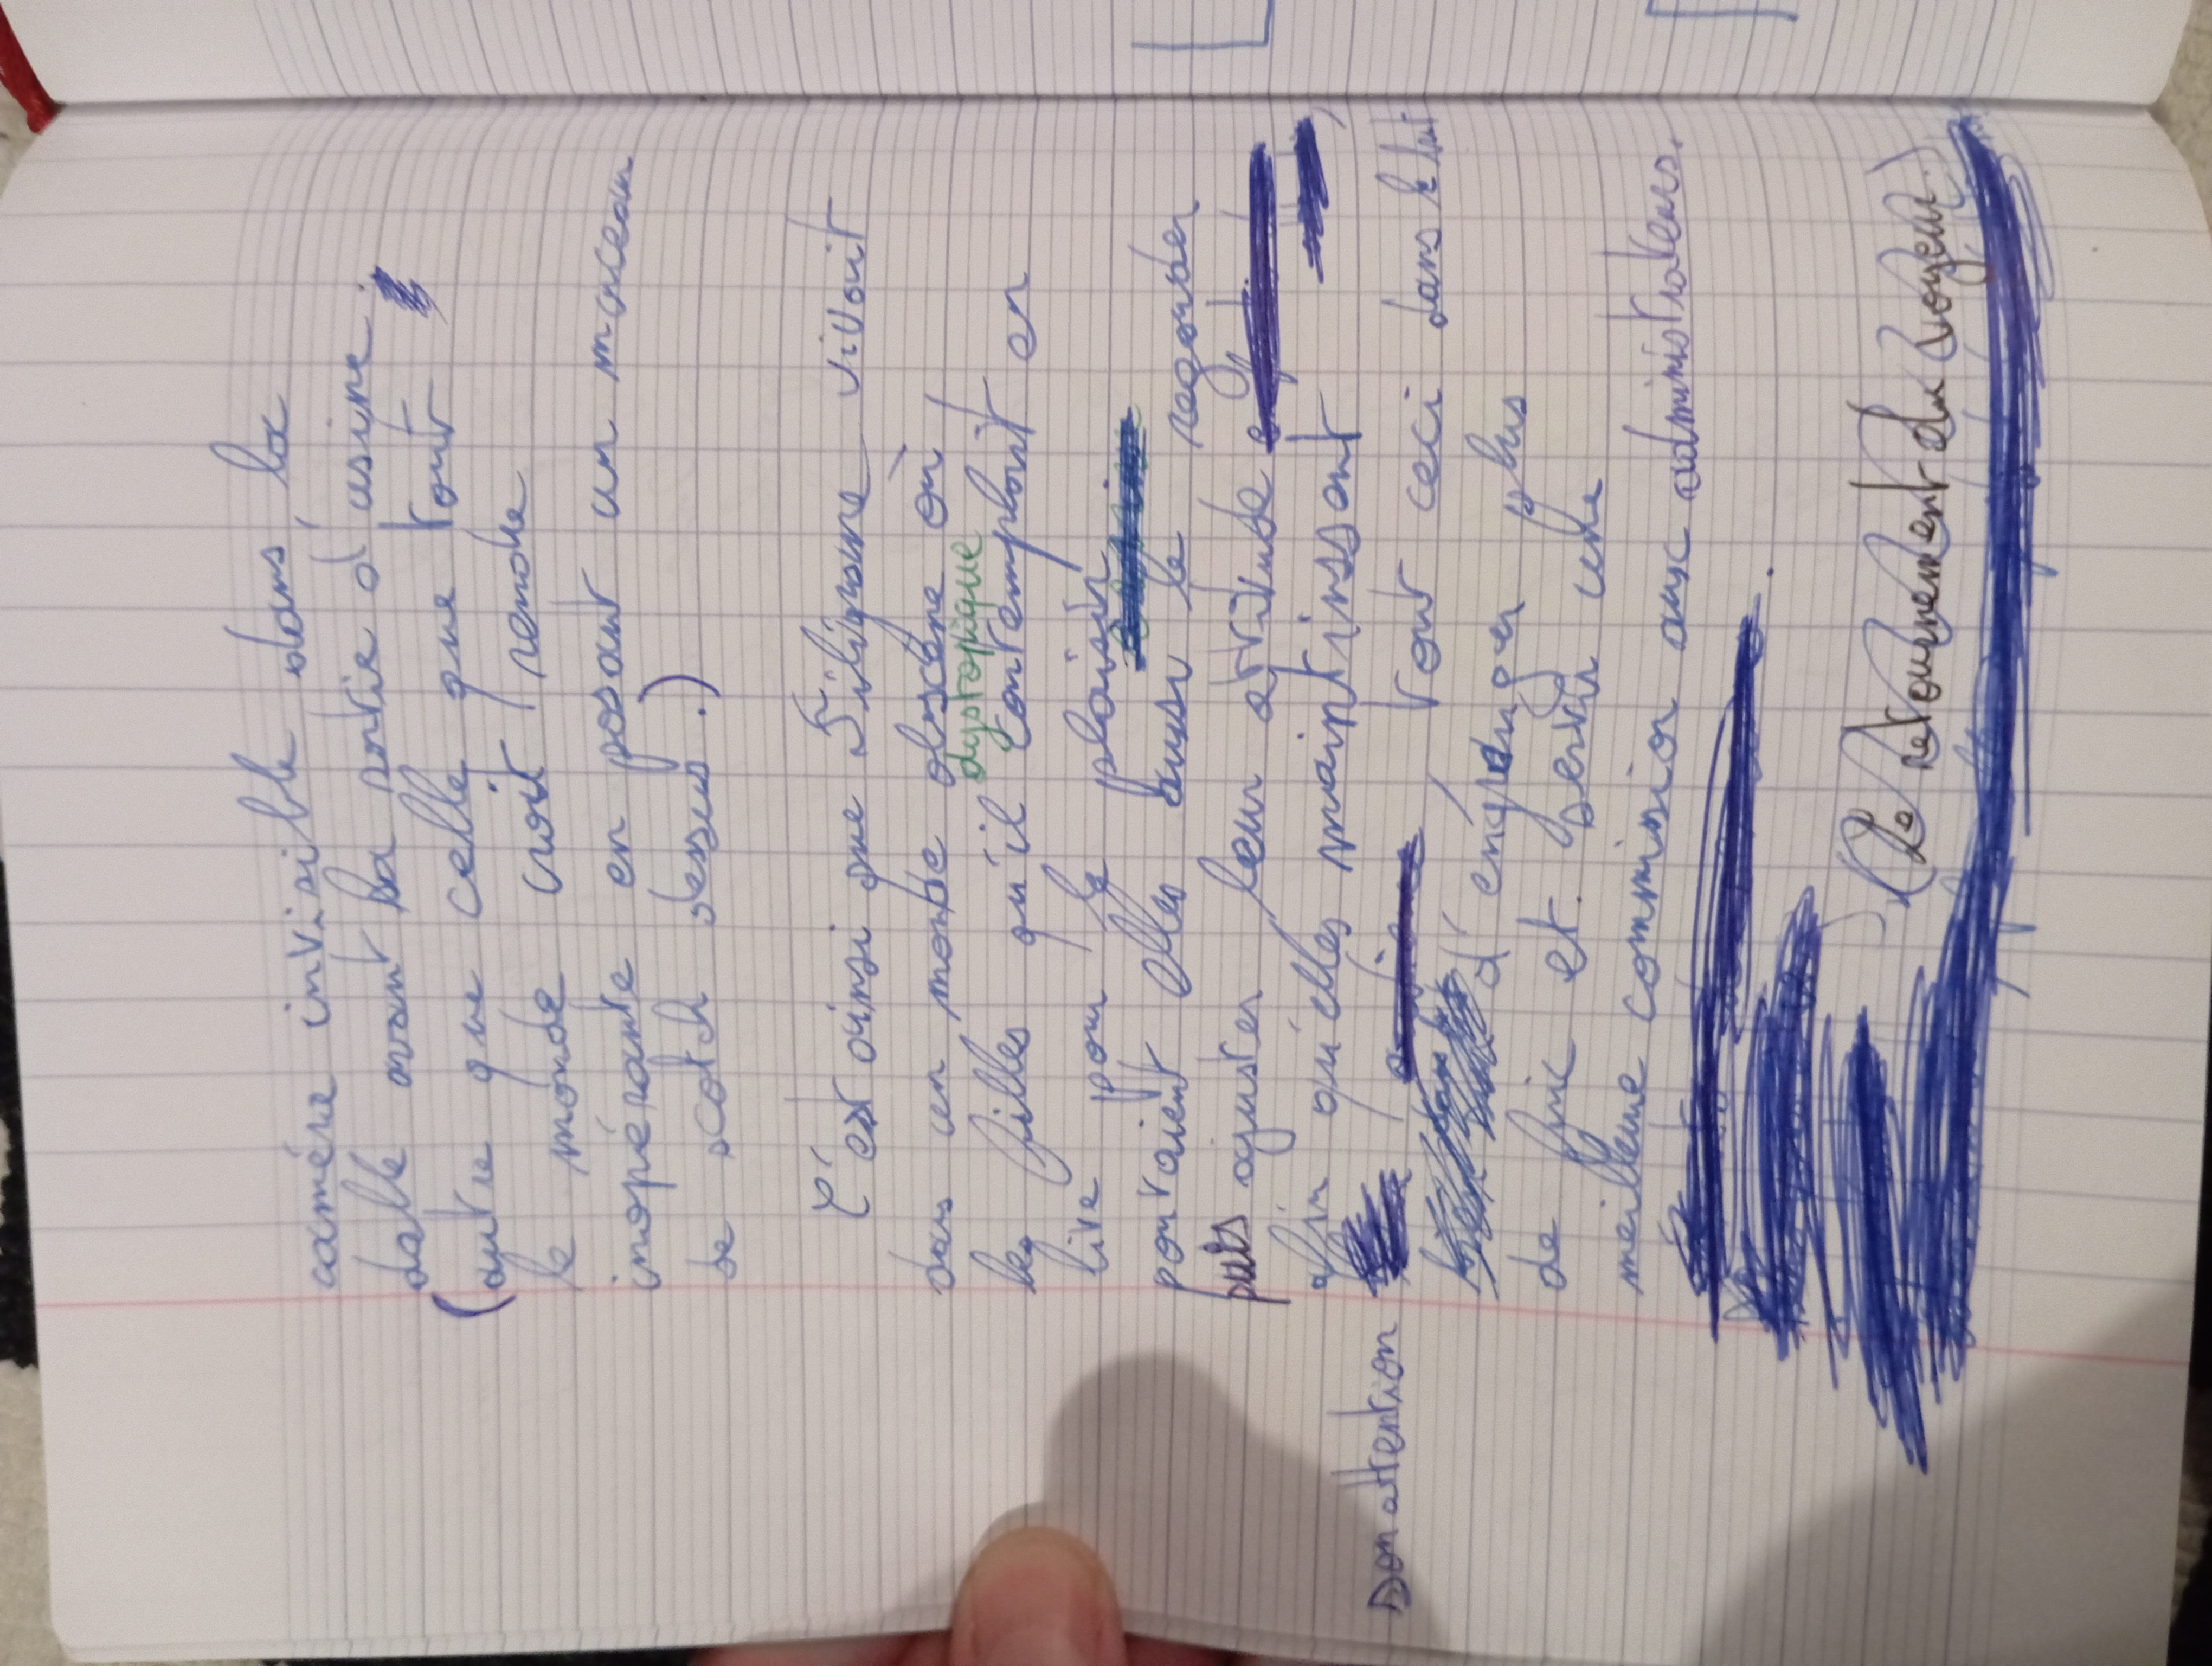 caméra invisible dans la
dalle avant la sortie d'usine.
(autre que celle que tout
le monde croit rendre
inopérante en posant un morceau
de scotch dessus.)
C'est ainsi que Filigrane vivait
dans un monde obscène où
dystopique
les filles qu'il contemplait en
live pour le plaisir
pouvaient elles aussi le regarder
puis ajuster leur attitude
afin qu'elles maintinssent
son attention , tout ceci dans le but
d'engranger plus
de fric et servir une
meilleure commission aux administrateurs.
(Le retournement du voyeur.)